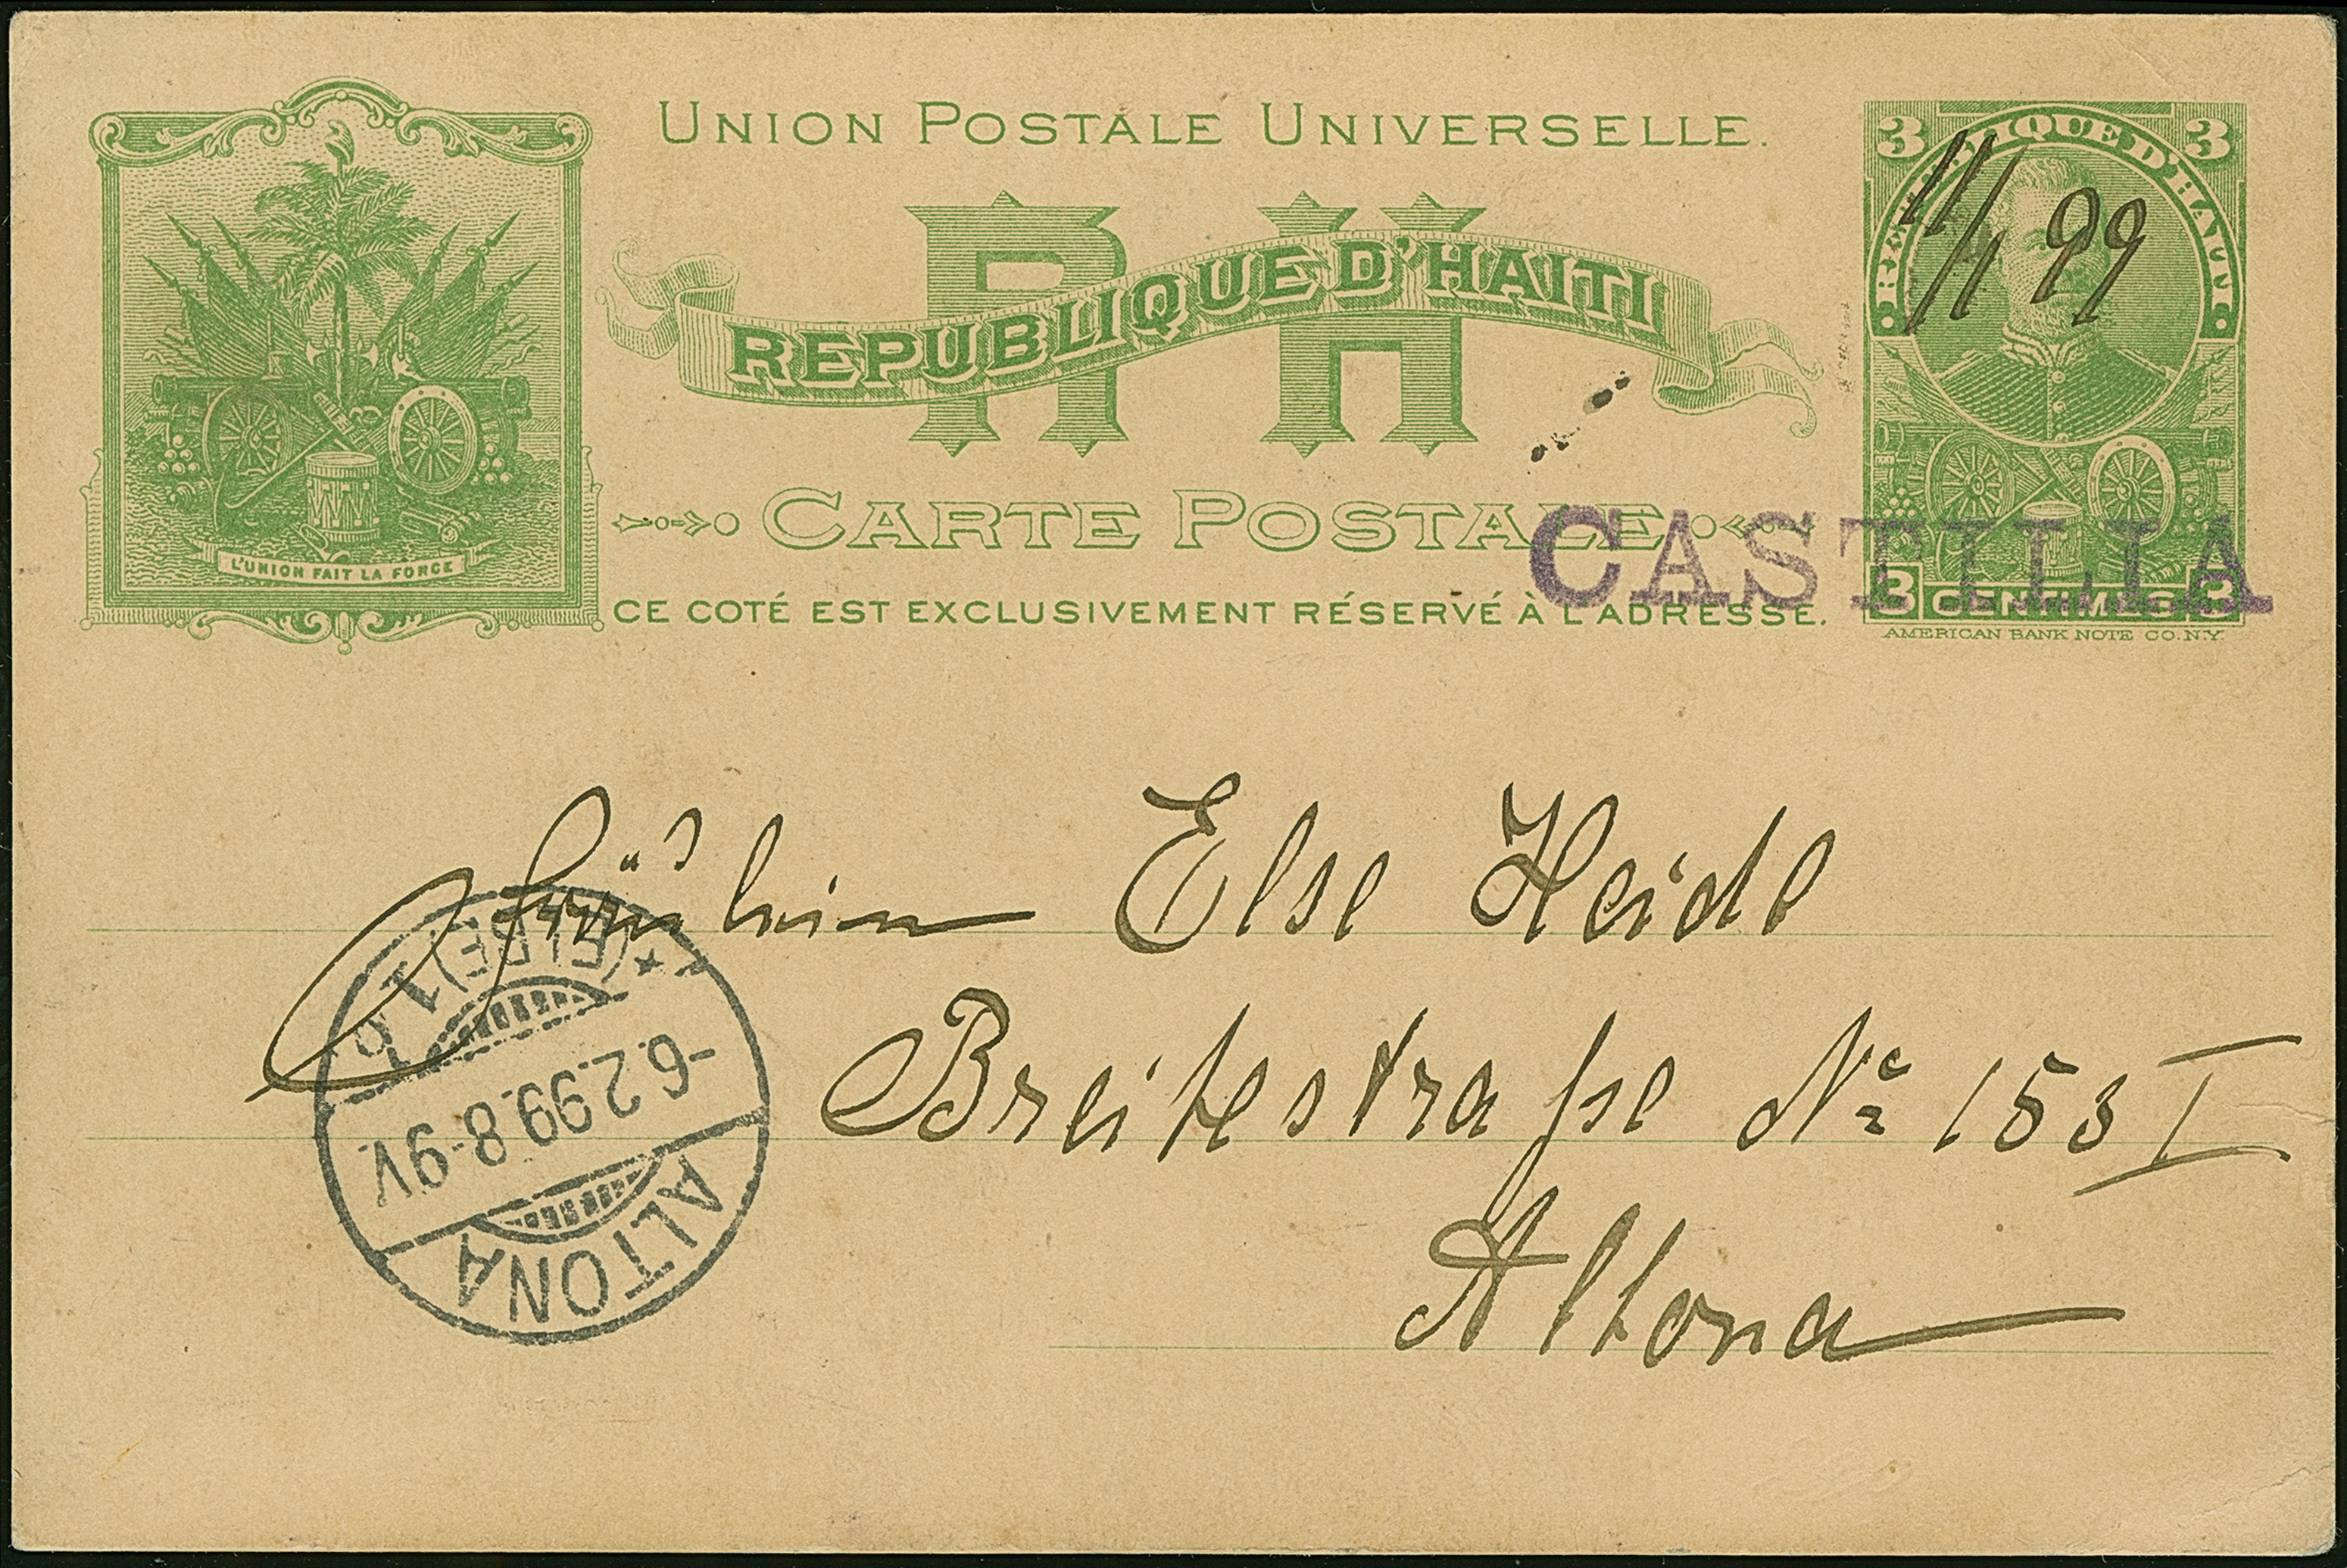 UNION POSTALE UNIVERSELLE.
3 REPUBLIQUE D'HAITI 3
11/1 99
R H
REPUBLIQUE D'HAITI
CARTE POSTALE
CASTILIA
L'UNION FAIT LA FORCE
CE COTÉ EST EXCLUSIVEMENT RÉSERVÉ À L'ADRESSE.
3 CENTIMES. 3
AMERICAN BANK NOTE CO. N.Y.
Fräulein Else Heide
Breitestraße No 153 I
Altona
ALTONA
-6.2.99.8-9V.
(ELBE) 1